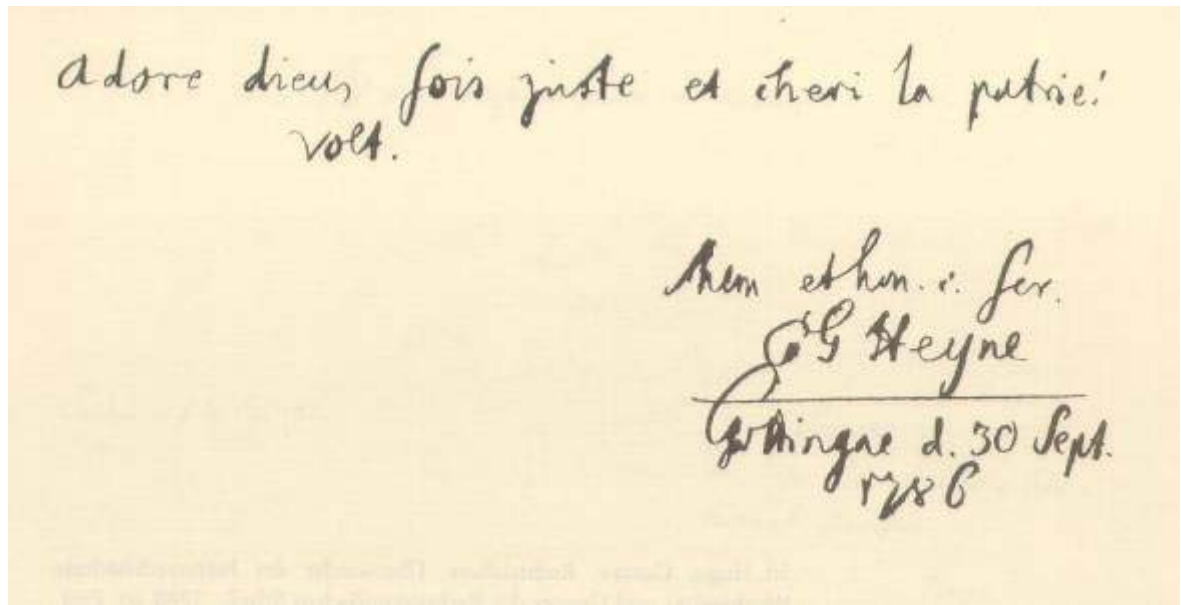 adore dieu, sois juste et cheri la patrie!
Volt.
Mem et hon. c. scr.
C G Heyne
Gottingae d. 30 Sept.
1786